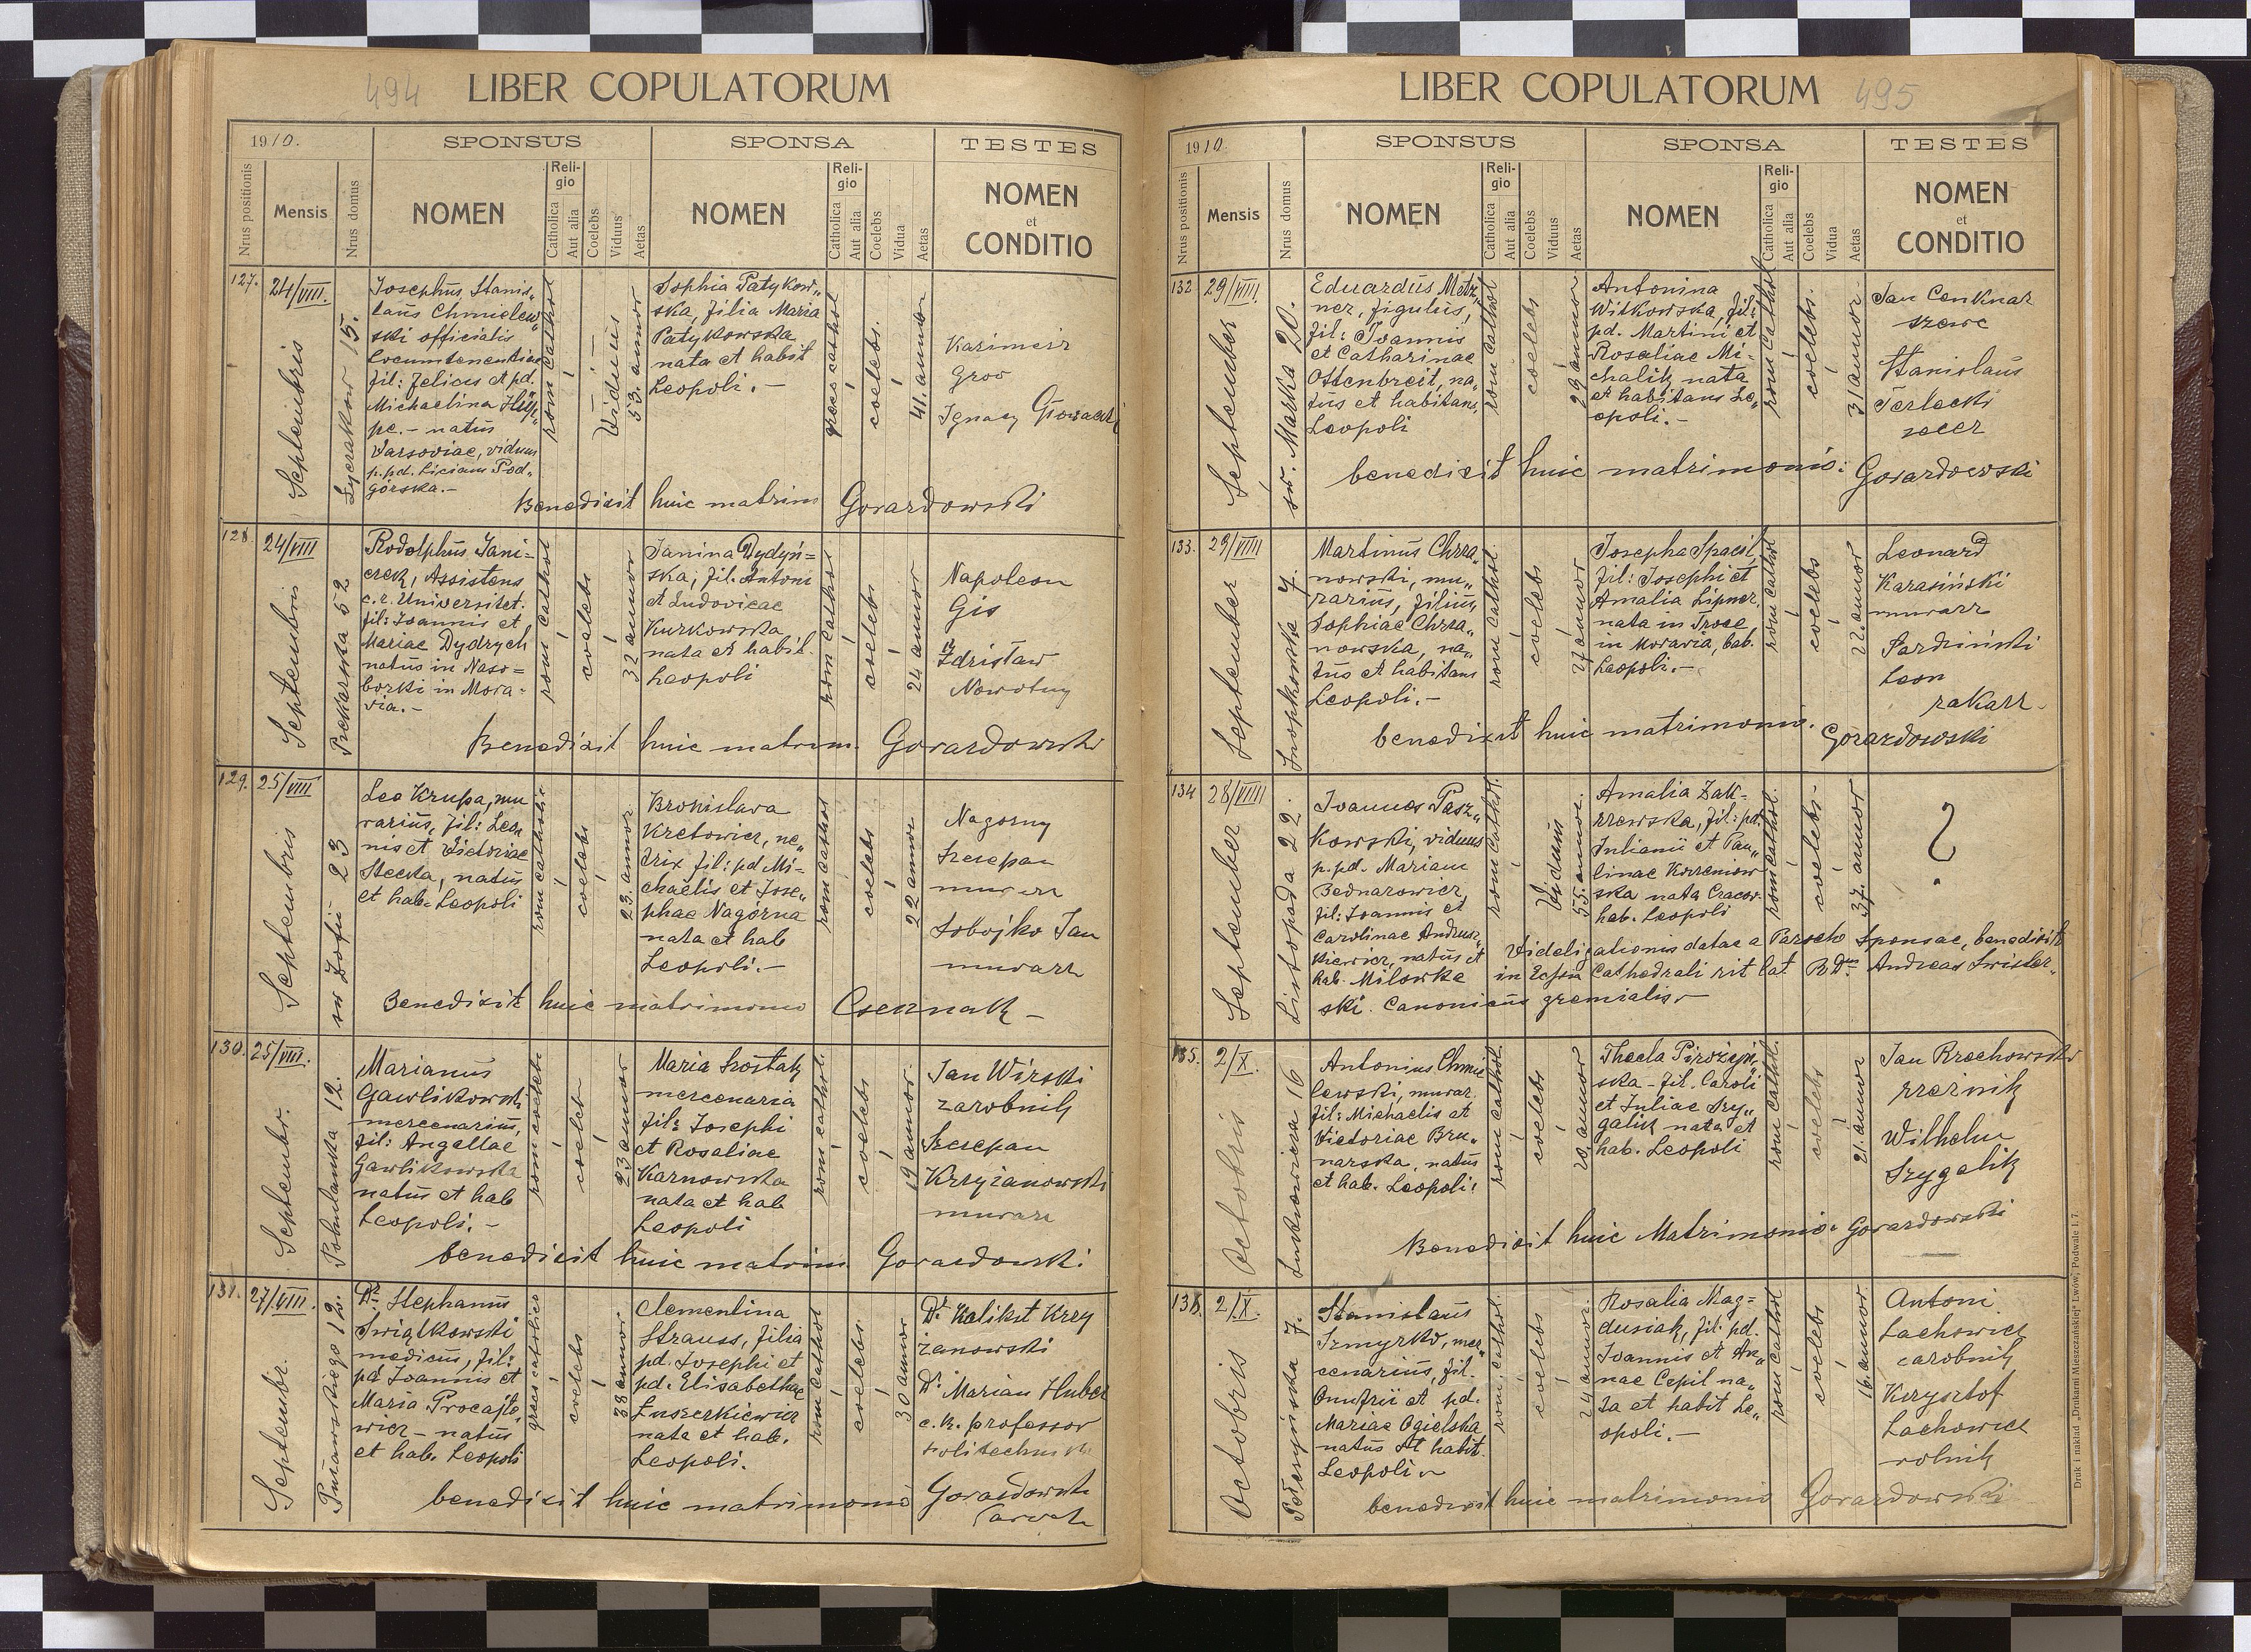 494 LIBER COPULATORUM
1910.
SPONSUS
SPONSA
TESTES
Nrus positionis
Mensis
Nrus domus
NOMEN
Religio
Catholica
Aut alia
Coelebs
Viduus
Aetas
NOMEN
Religio
Catholica
Aut alia
Coelebs
Vidua
Aetas
NOMEN
et
CONDITIO
127.
24/VIIII.
Septembris
Łyczakow 15.
Josephus Stanis„
laus Chmielew„
ski officialis
Locumtenentiae
fil: Felicis et pd.
Michaelina
pe. – natus
Varsoviae, viduus
p. pd. Liciam Pod„
górska. –
rom cathol
Viduus
53. annor
Sophia Patykow„
ska, filia Maria
Patykowska
nata et habit
Leopoli. –
graec cathol
coelebs.
41. annor
Kazimierz
Groo
Ignacy Głowacki
Benedixit huic matrim Gorazdowski
128.
24/VIIII
Septembris
Piekarska 52
Rodolphus Jani=
czek, Assistens
c. r. Universitet.
fil: Joannis et
Mariae Dydrych
natus in Naso=
borki in Mora=
via. –
rom cathol
coelebs
32 annor
Janina Dydyń=
ska, fil. Antoni
et Ludovicae
Kurkowska
nata et habit.
Leopoli
rom cathol
coelebs
24 annor
Napoleon
Gis
Zdzisław
Nowotny
Benedixit huic matrim. Gorazdowski
129.
25/VIIII
Septembris
św Zofii 23
Leo Krupa, mu
rarius, fil: Leo„
nis et Victoriae
Stecka, natus
et hab. Leopoli
rom catholic
coelebs
23. annor
Bronislava
Kretowicz, ne„
trix fil: pd. Mi=
chaelis et Jose„
phae Nagórna
nata et hab
Leopoli. –
rom cathol
coelebs
22 annor
Nagorny
Szczepan
murarz
Sobojko Jan
murarz
Benedixit huic matrimonio Csernak –
130.
25/VIIII.
Septembr.
Pohulanka 12.
Marianus
Gawlikowski
mercenarius,
fil: Angellae
Gawlikowska
natus et hab
Leopoli. –
coeleb
23 annor
Maria Szostak
mercenaria
fil: Josephi
et Rosaliae
Karnowska
nata et hab
Leopoli
rom cathol.
coelebs
19 annor.
Jan Wirski
zarobnik
Szczepan
Krzyżanowski
murarz
benedixit huic matrim Gorazdowski
131.
27/VIIII.
Septembr.
Pułaskiego 12.
Dr. Stephanus
Świątkowski
medicus, fil:
pd Joannis et
Maria Procajło„
wicz – natus
et hab. Leopoli
graec catholico
coelebs
38 annor.
Clementina
Strauss, filia
pd. Josephi et
pd. Elisabethae
Łuszczkiewicz
nata et hab.
Leopoli.
rom cathol
coelebs.
30 annor
Dr. Kalikst Krzy
żanowski
Dr. Marian Huber
c. k. professor
politechniki
benedixit huic matrimonio Gorazdowski
LIBER COPULATORUM 495
1910.
SPONSUS
SPONSA
TESTES
Nrus positionis
Mensis
Nrus domus
NOMEN
Religio
Catholica
Aut alia
Coelebs
Viduus
Aetas
NOMEN
Religio
Catholica
Aut alia
Coelebs
Vidua
Aetas
NOMEN
et
CONDITIO
132
29/VIIII.
September
św. Marka 20.
Eduardus Metz„
ner, figulus,
fil: Joannis
et Catharinae
Ottenbreit, na„
tus et habitans
Leopoli
rom cathol
coelebs
29 annor
Antonina
Witkowska, fil:
pd. Martini et
Rosaliae Mi=
chalik nata
et habitans Le„
opoli. –
rom cathol
coelebs.
31 annor.
Jan Cenknar
szewc
Stanislaus
Terlecki
benedixit huic matrimonio: Gorazdowski
133.
29/VIIII
September
Snopkowska 7.
Martinus Chrza„
nowski, mu„
rarius, filius
Sophiae Chrza„
nowska, na„
tus et habitans
Leopoli. –
rom cathol.
coelebs
27 annor
Josepha Spaesl
fil: Josephi et
Amalia Lipner.
nata in
in Moravia, hab.
Leopoli. –
rom cathol
coelebs
22. annor
Leonard
Karasiński
murarz
Sardziński
Leon
benedixit huic matrimonio. Gorazdowski
134
28/VIIII
September
Listopada 22.
Joannes Pasz„
kowski, viduus
p. pd. Mariam
Bednarowicz
fil: Joannis et
Carolinae Andrusz„
kiewicz, natus et
hab. Milowka
rom cathol.
Viduus
55. annor.
Amalia Zak=
rzewska, fil: pd.
Julianii et Pau„
linae Korzeniow
ska nata Cracov.
hab. Leopoli
rom cathol.
coelebs.
37. annor
?
Vi deligationis datae a Parocho Sponsae, benedixit
in Eccla Cathedrali rit lat. RDus Andreas Świster„
ski Canonicus gremialis
135.
2/X.
Octobris
16
Antonius Chmie
lewski, murar.
fil: Michaelis et
Victoriae Bru„
narska, natus
et hab. Leopoli.
rom cathol.
coelebs
20. annor
Thecla Pirożyń„
ska – fil. Caroli
et Juliae Szy„
galik nata et
hab. Leopoli
rom cathol.
coelebs
21. annor
Jan Brzechowski
rzeźnik
Wilhelm
Szygalik
Benedixit huic Matrimonio. Gorazdowski
136.
2/X.
Octobris
Potoczyńska 7.
Stanislaus
Szmyrko, mer„
cenarius, fil.
Onufrii et pd.
Mariae Ogielska
natus et habit.
Leopoli
rom. cathol.
coelebs
24 annor.
Rosalia Mag=
dusiak, fil: pd.
Joannis et An„
nae Cepil na„
ta et habit Le„
opoli. –
rom cathol
coelebs
16. annor
Antoni
Lachowicz
zarobnik
Krzysztof
Lachowicz
rolnik
benedixit huic matrimonio Gorazdowski
Druk i nakład „Drukarni Mieszczańskiej" Lwów, Podwale l. 7.